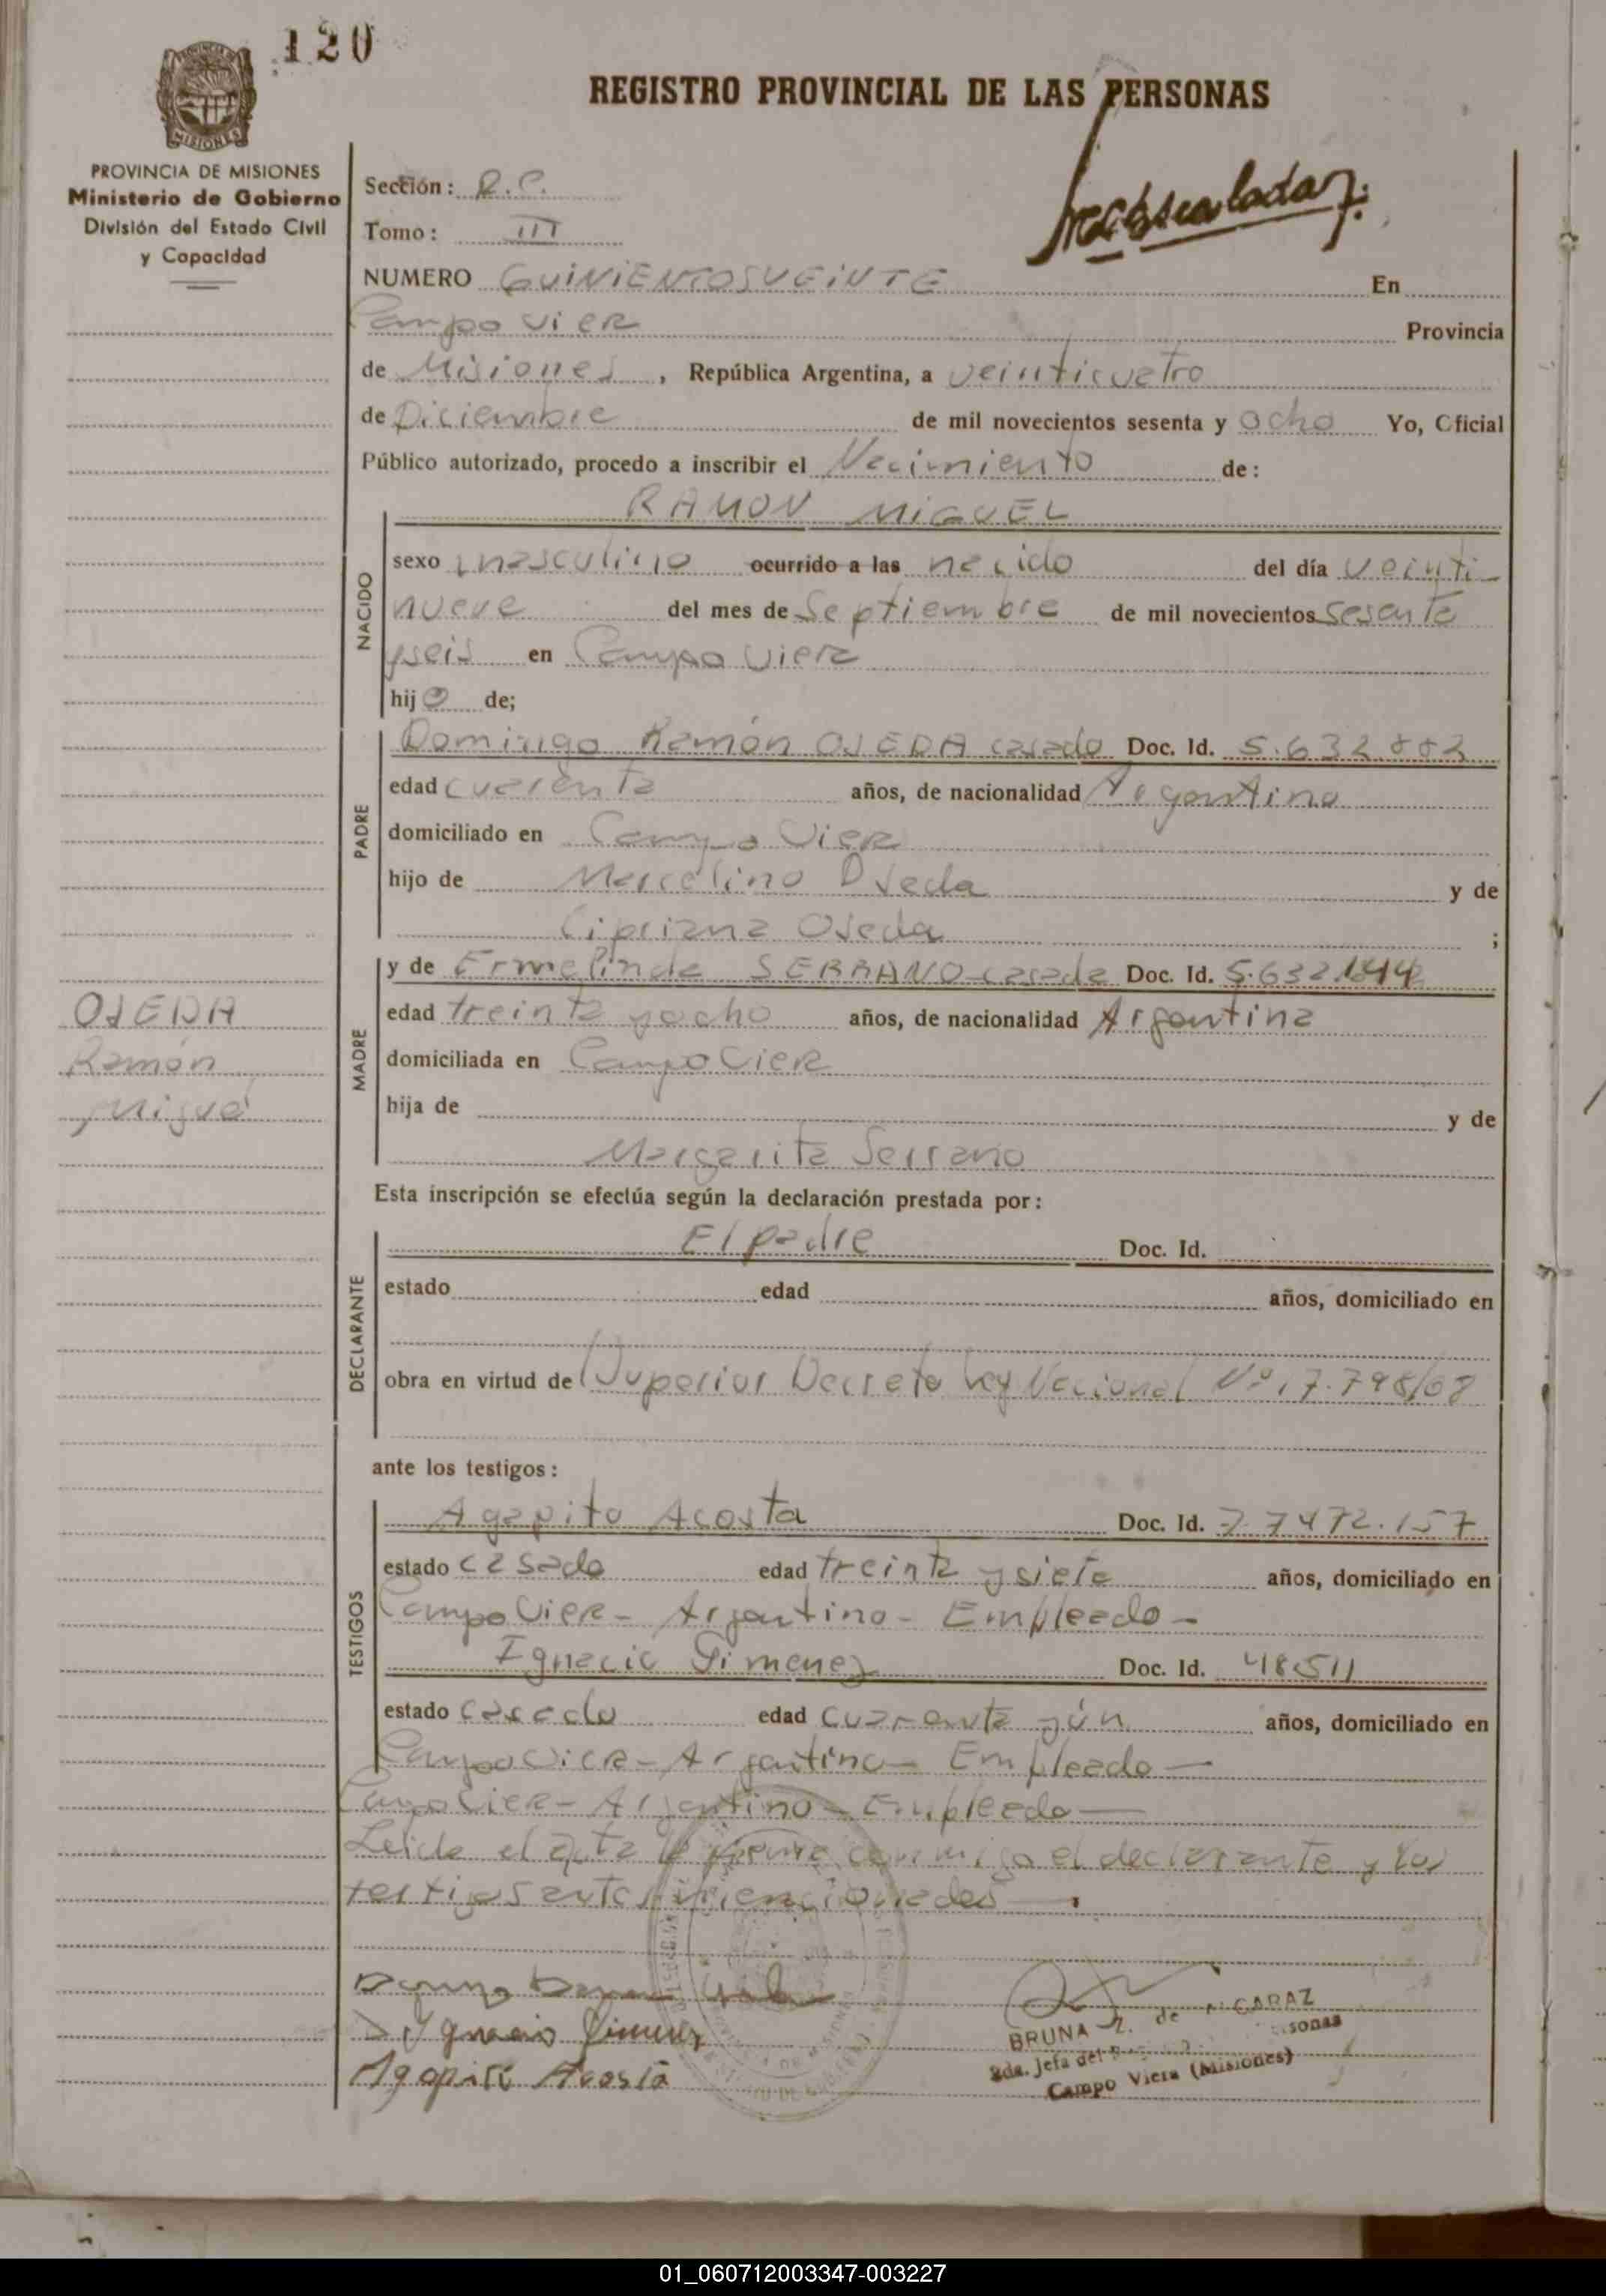 120
REGISTRO PROVINCIAL DE LAS PERSONAS
MISIONES
PROVINCIA DE MISIONES
Ministerio de Gobierno
División del Estado Civil
y Capacidad
Sección: R.C.
Tomo: III
NUMERO QUINIENTOSVEINTE En
Campo Viera Provincia
de Misiones, República Argentina, a veinticuatro
de Diciembre de mil novecientos sesenta y ocho Yo, Oficial
Público autorizado, procedo a inscribir el Nacimiento de:
RAMON MIGUEL
NACIDO
sexo masculino ocurrido a las nacido del día veinti
nueve del mes de Septiembre de mil novecientos sesenta
yseis en Campo Viera
hijo de;
PADRE
Domingo Ramón OJEDA casado Doc. Id. 5.632.
edad cuarenta años, de nacionalidad Argentino
domiciliado en Campo Viera
hijo de Marcelino Ojeda y de
Cipriana Ojeda ;
MADRE
y de Ermelinda SERRANO casada Doc. Id.
edad treinta yocho años, de nacionalidad Argentina
domiciliada en Campo Viera
hija de y de
Margarita Serrano
OJEDA
Ramón
Miguel
Esta inscripción se efectúa según la declaración prestada por:
DECLARANTE
El padre Doc. Id.
estado edad años, domiciliado en
obra en virtud de Superior Decreto Ley Nacional Nº 17.798/68
ante los testigos:
TESTIGOS
Agapito Acosta Doc. Id. 7.472.157
estado casado edad treinta ysiete años, domiciliado en
Campo Viera - Argentino - Empleado -
Ignacio Gimenez Doc. Id. 48511
estado casado edad cuarenta yún años, domiciliado en
Campo Viera - Argentino - Empleado -
Campo Viera - Argentino - Empleado -
Leida el acta la firma conmigo el declarante y los
testigos antes mencionados -
Ignacio Gimenez
Agapito Acosta
BRUNA Z. de ALCARAZ
2da. Jefa del
Campo Viera (Misiones)
01_060712003347-003227